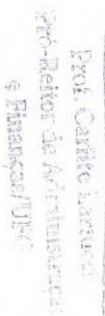 Prof. Carlito Lariucci
Pró-Reitor de Administração
e Finanças/UFG